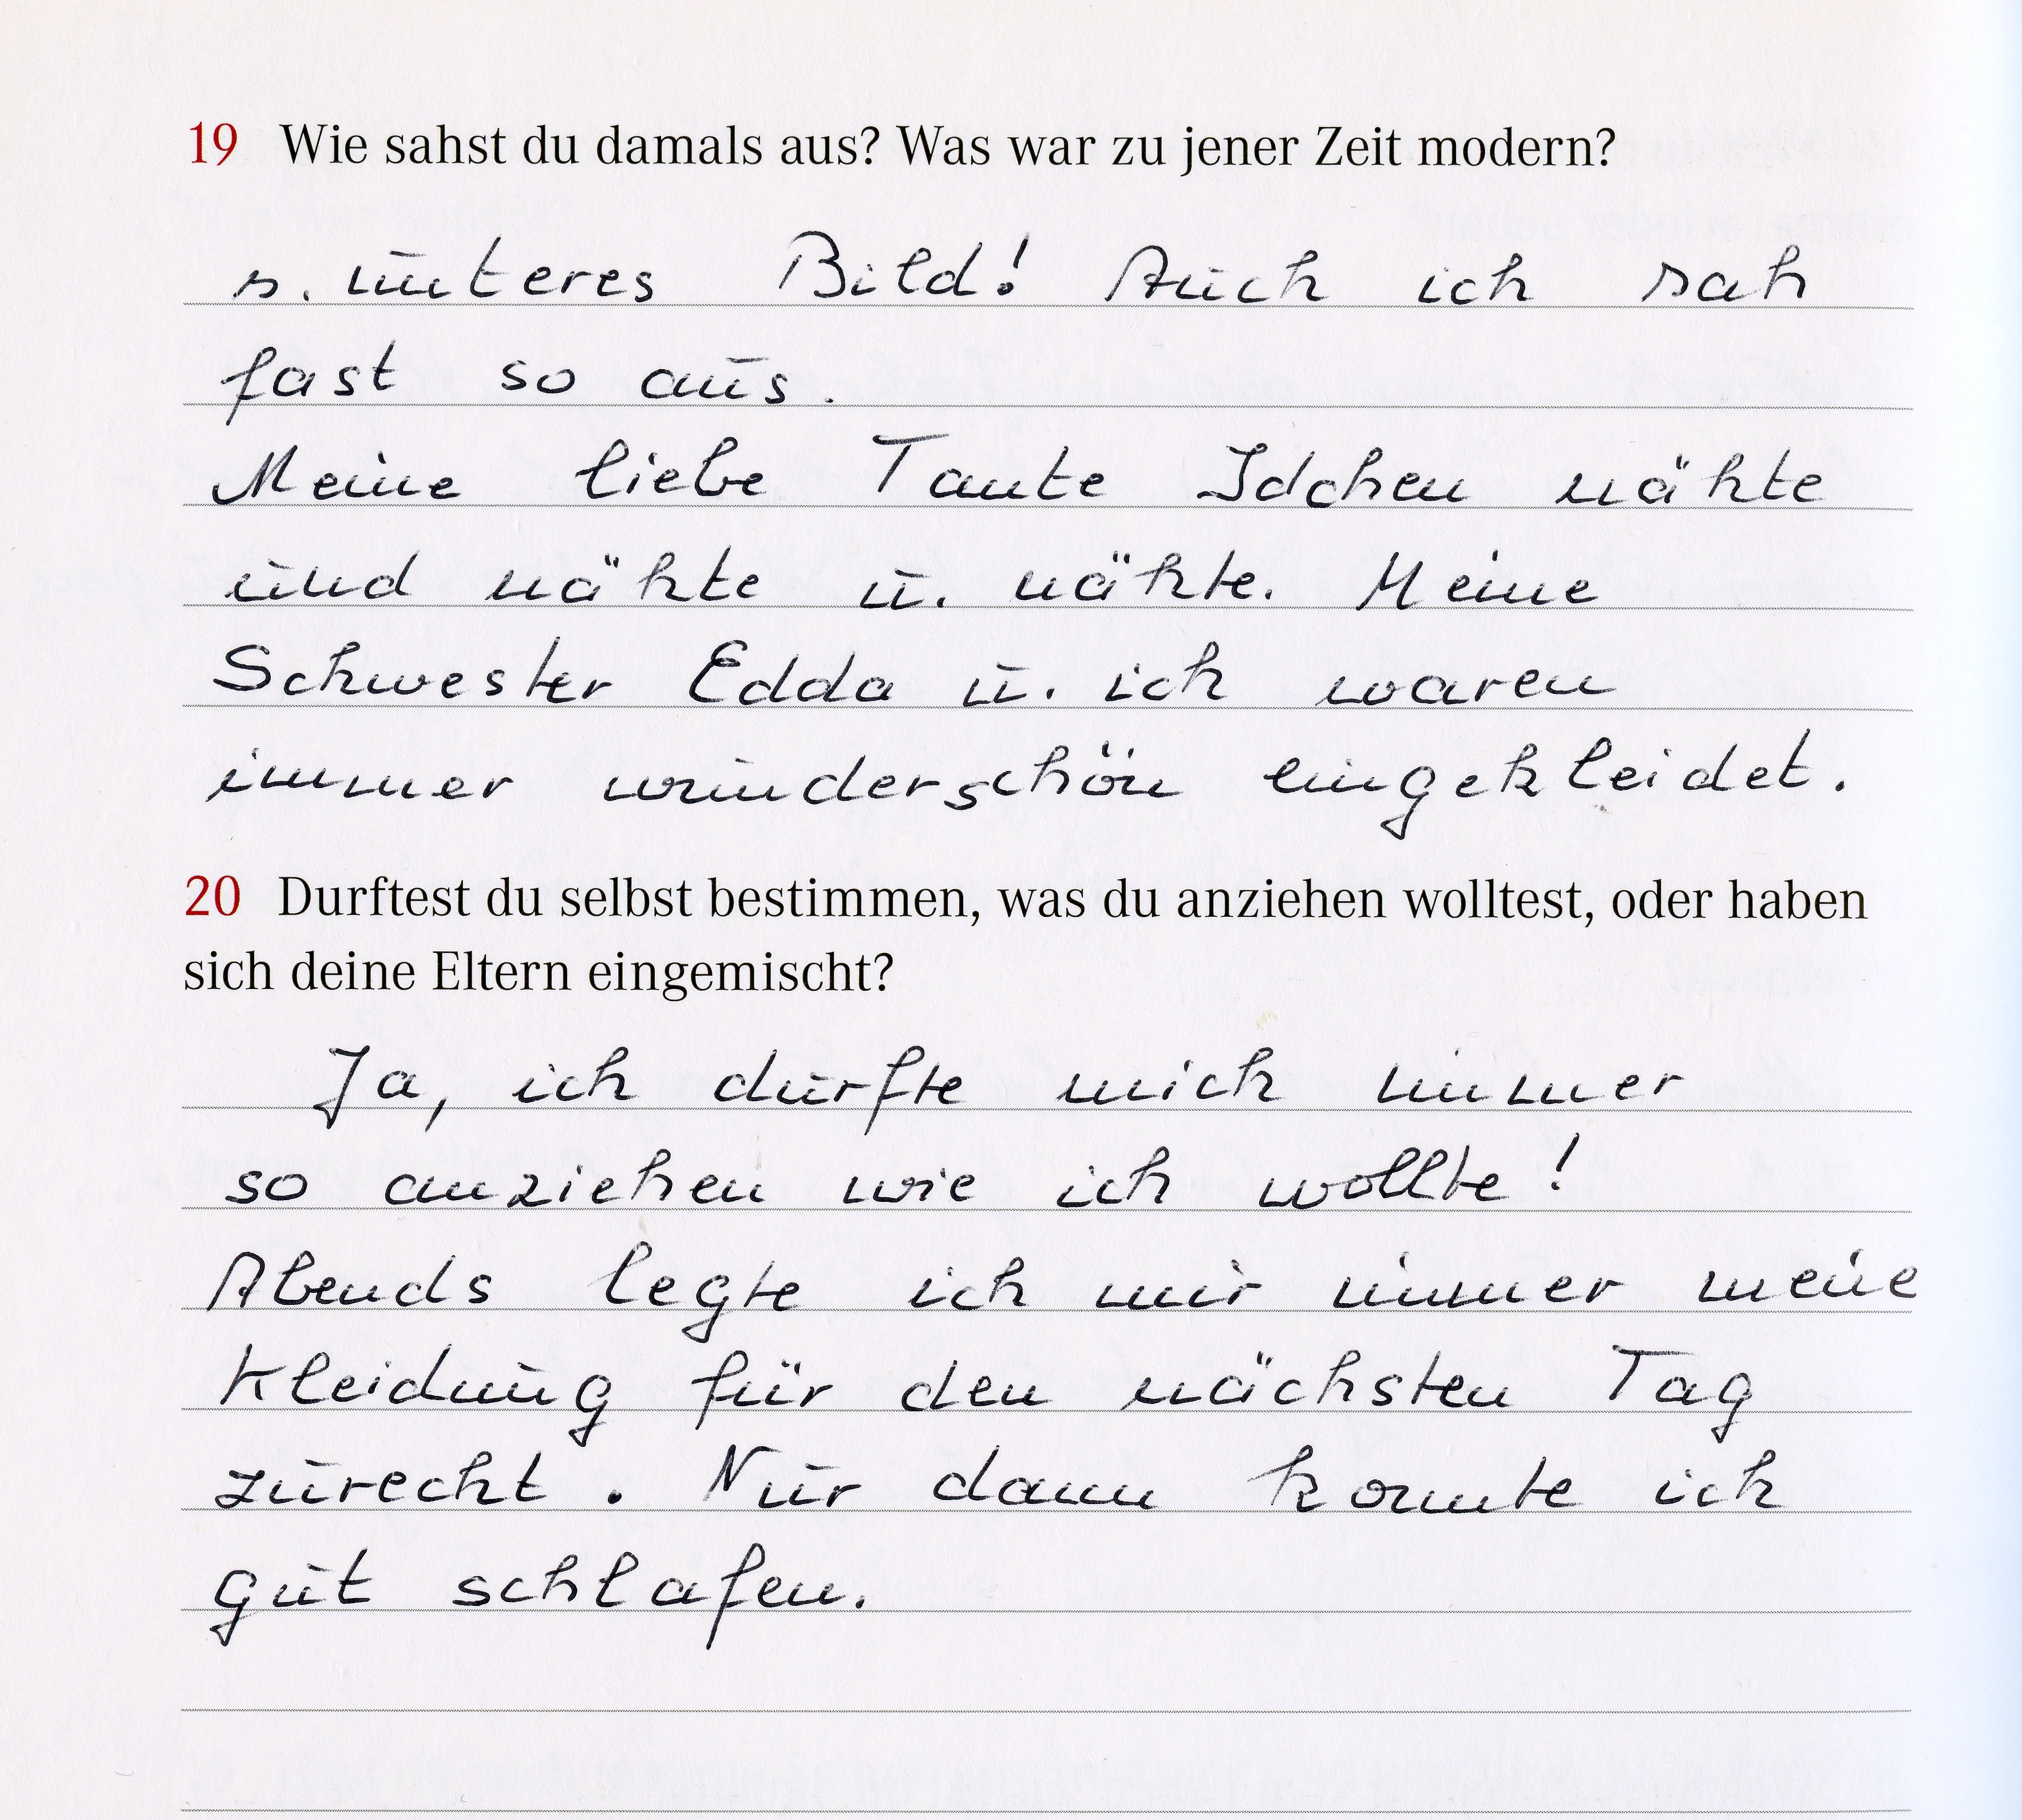 19 Wie sahst du damals aus? Was war zu jener Zeit modern?
s. unteres Bild! Auch ich sah
fast so aus.
Meine liebe Tante Idchen nähte
und nähte u. nähte. Meine
Schwester Edda u. ich waren
immer wunderschön eingekleidet.
20 Durftest du selbst bestimmen, was du anziehen wolltest, oder haben
sich deine Eltern eingemischt?
Ja, ich durfte mich immer
so anziehen wie ich wollte!
Abends legte ich mir immer meine
Kleidung für den nächsten Tag
zurecht. Nur dann konnte ich
gut schlafen.